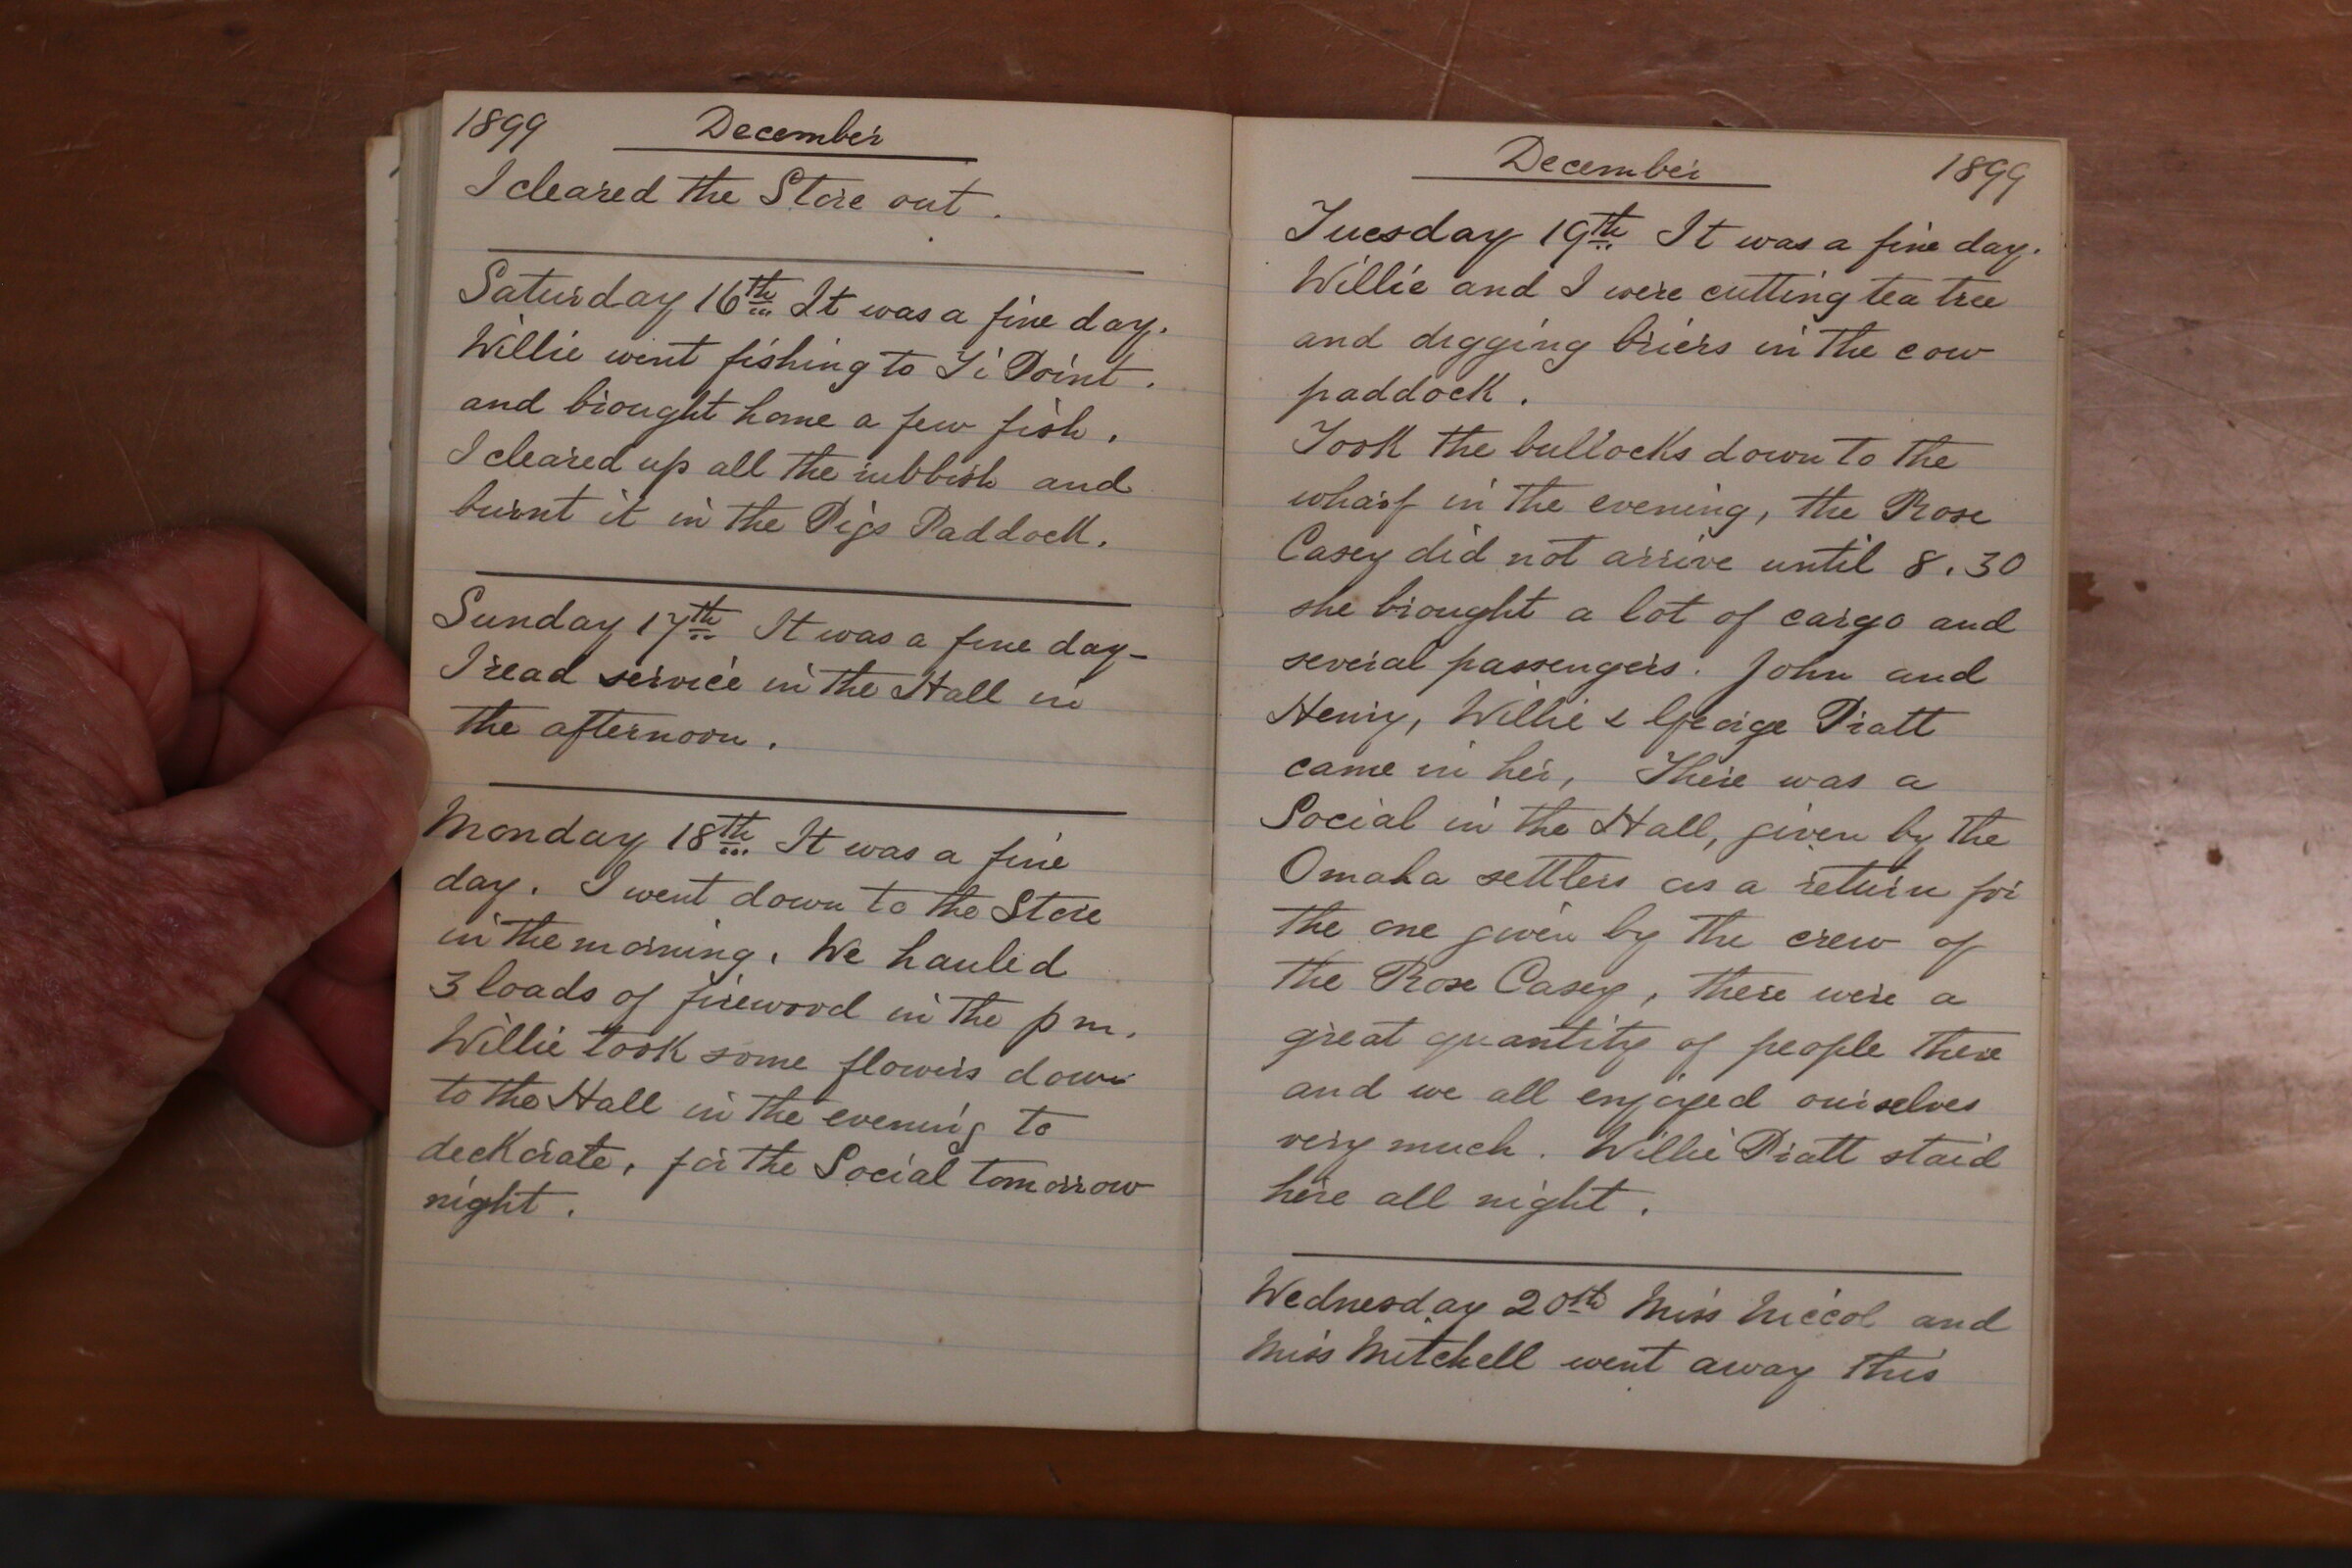 1899 December
I cleared the Store out.
Saturday 16th It was a fine day.
Willie went fishing to Ti Point.
and brought home a few fish.
I cleared up all the rubbish and
burnt it in the Pigs Paddock.
Sunday 17th It was a fine day-
I read service in the Hall in
the afternoon.
Monday 18th It was a fine
day. I went down to the Store
in the morning. We hauled
3 loads of firewood in the pm.
Willie took some flowers down
to the Hall in the evening to
deckorate, for the Social tomorrow
night.
December 1899
Tuesday 19th It was a fine day.
Willie and I were cutting tea tree
and digging briers in the cow
paddock.
Took the bullocks down to the
wharf in the evening, the Rose
Casey did not arrive until 8.30
she brought a lot of cargo and
several passengers. John and
Henry, Willie & George Pratt
came in her, There was a
Social in the Hall, given by the
Omaha settlers as a return for
the one given by the crew of
the Rose Casey, there were a
great quantity of people there
and we all enjoyed ourselves
very much. Willie Pratt staid
here all night.
Wednesday 20th Miss Niccol and
Miss Mitchell went away this